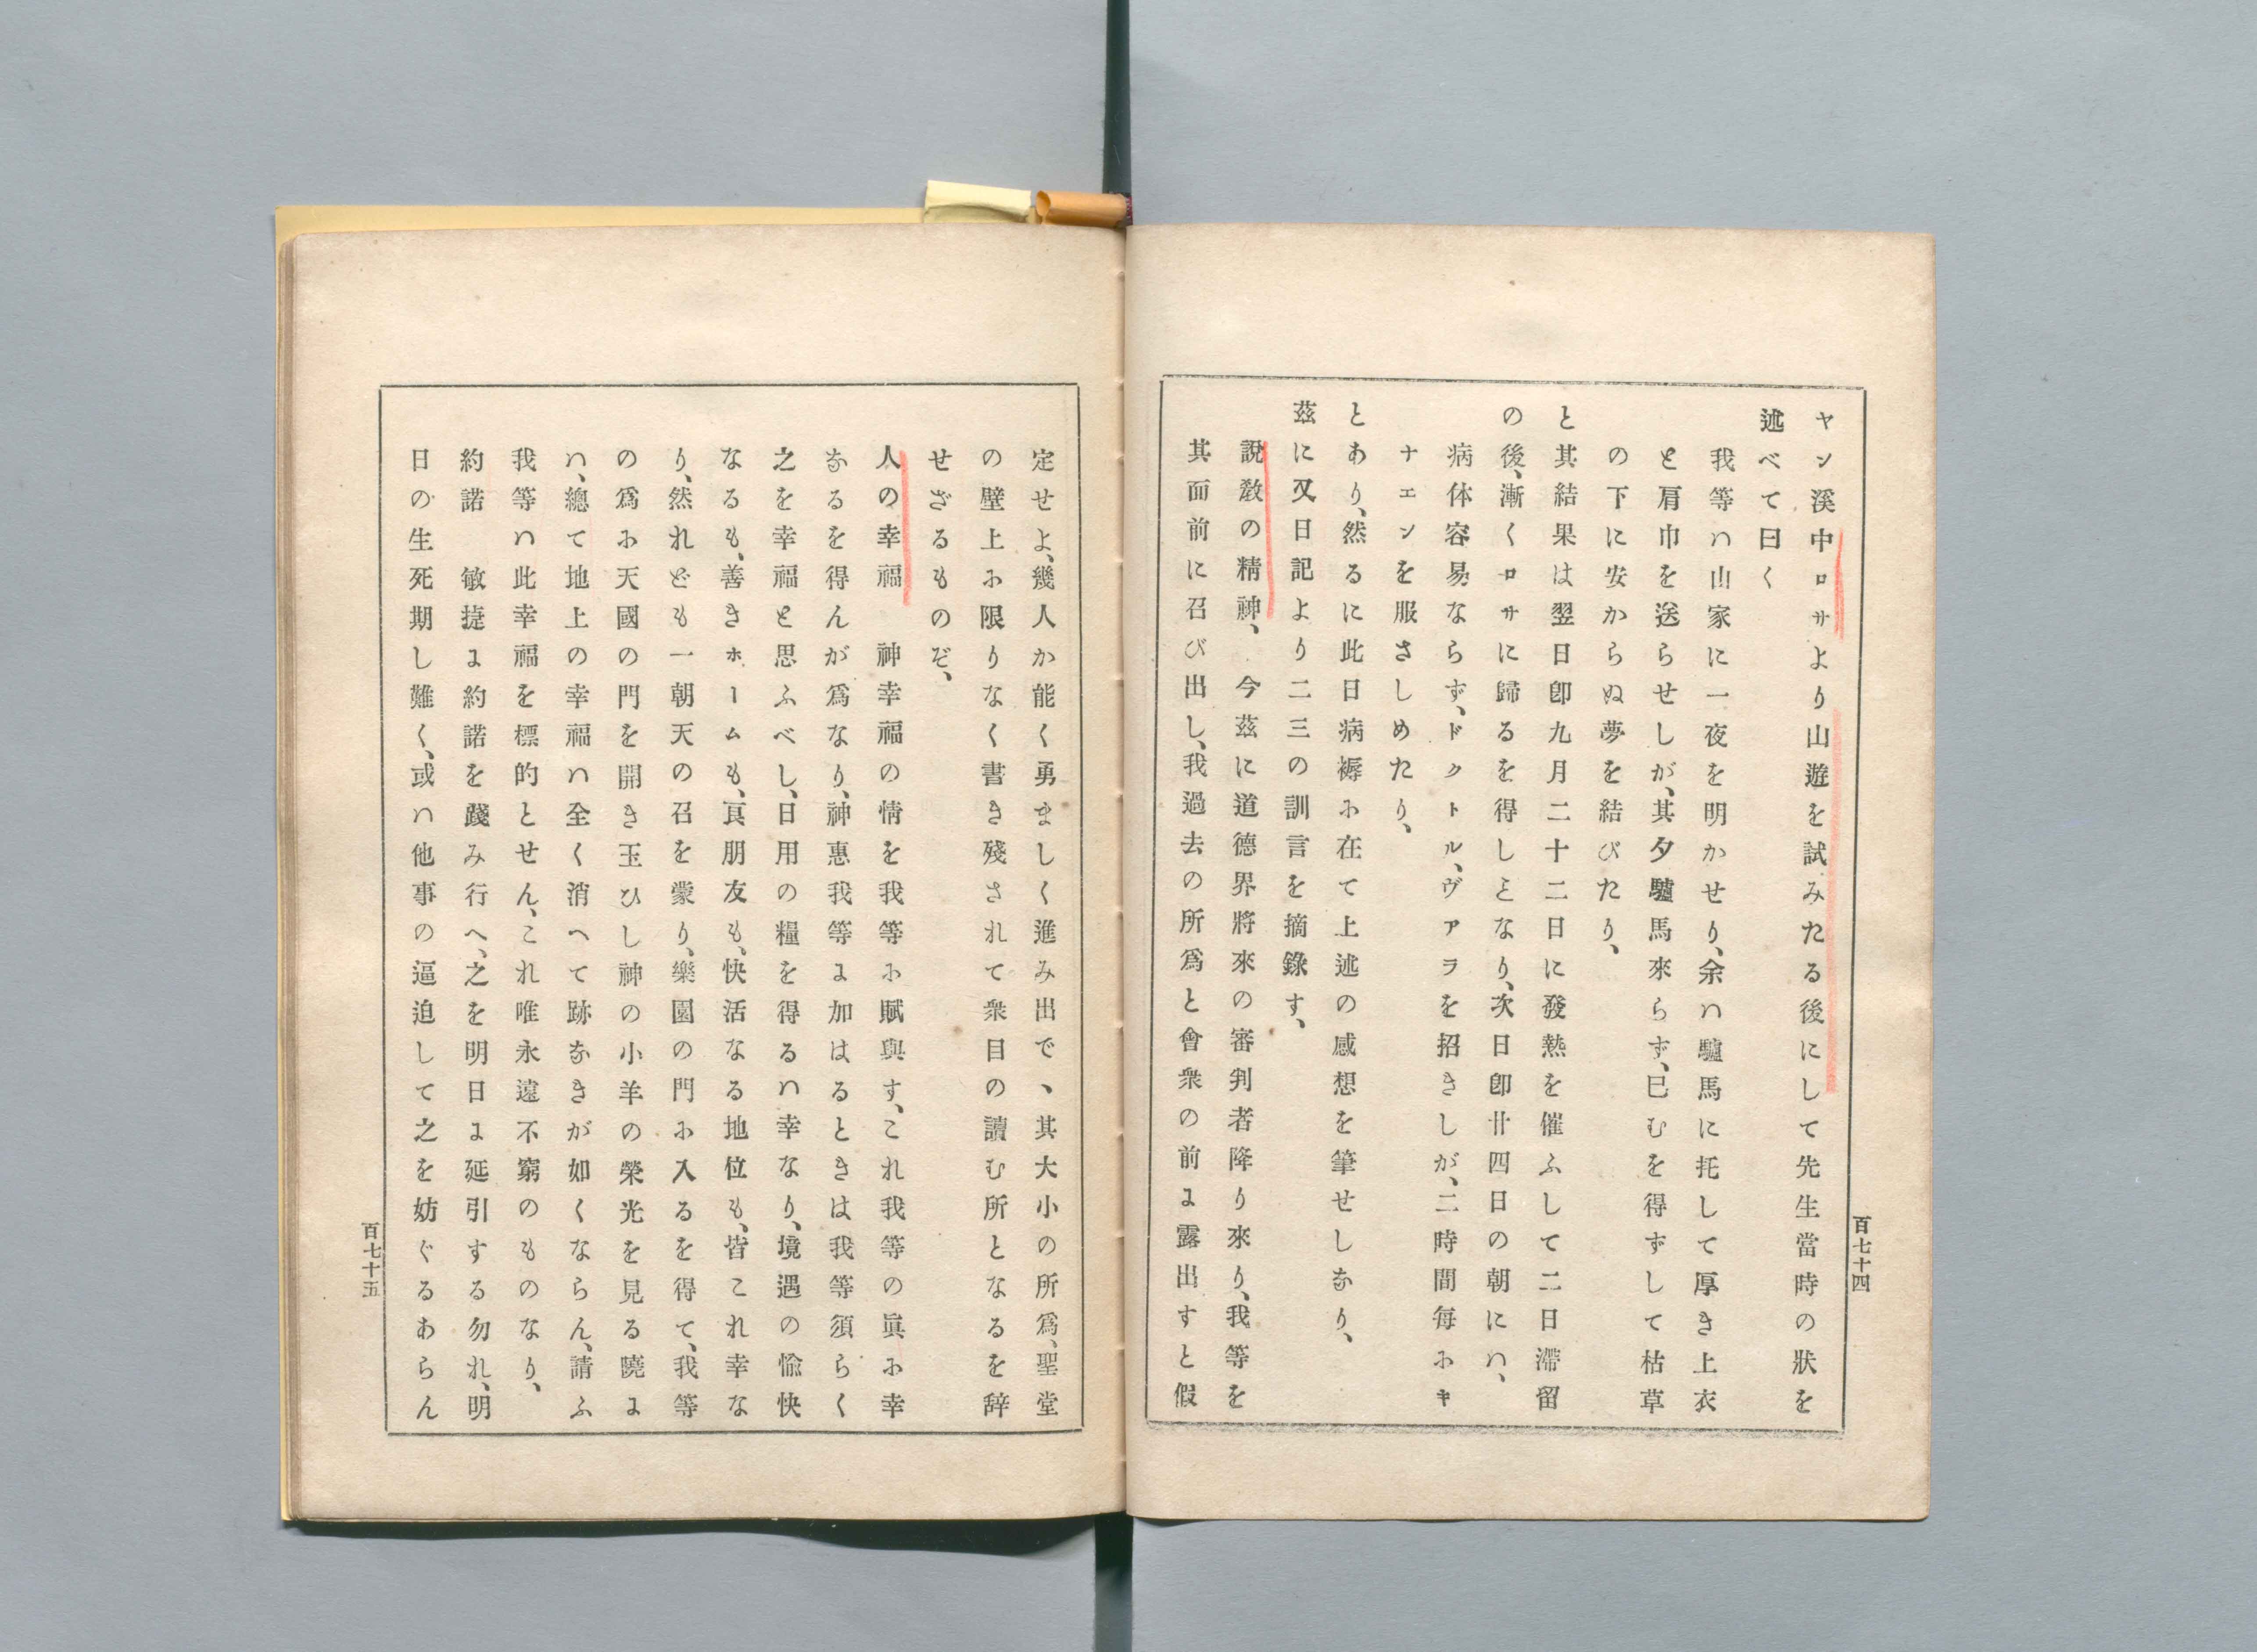 ヤン溪中ロサより山遊を試みたる後にして先生當時の狀を
述べて曰く
我等ハ山家に一夜を明かせり、余ハ驢馬に托して厚き上衣
と肩巾を送らせしが、其夕驢馬來らず、已むを得ずして枯草
の下に安からぬ夢を結びたり、
と其結果は翌日卽九月二十二日に發熱を催ふして二日滯留
の後、漸くロサに歸るを得しとなり、次日卽廿四日の朝にハ、
病体容易ならず、ドクトル、ヴアラを招きしが、二時間毎ホキ
ナエンを服さしめたり、
とあり、然るに此日病褥ホ在て上述の感想を筆せしなり、
茲に又日記より二三の訓言を摘錄す、
說敎の精神、今茲に道德界將來の審判者降り來り、我等を
其面前に召び出し、我過去の所爲と會衆の前よ露出すと假
百七十四
定せよ、幾人か能く勇ましく進み出で、其大小の所爲、聖堂
の壁上ホ限りなく書き殘されて衆目の讀む所となるを辞
せざるものぞ、
人の幸福　神幸福の情を我等ホ賦與す、これ我等の眞ホ幸
なるを得んが爲なり、神惠我等よ加はるときは我等須らく
之を幸福と思ふべし、日用の糧を得るハ幸なり、境遇の愉快
なるも、善きホームも、良朋友も、快活なる地位も、皆これ幸な
り、然れども一朝天の召を蒙り、樂園の門ホ入るを得て、我等
の爲ホ天國の門を開き玉ひし神の小羊の榮光を見る曉よ
ハ、總て地上の幸福ハ全く消へて跡なきが如くならん、請ふ
我等ハ此幸福を標的とせん、これ唯永遠不窮のものなり、
約諾　敏捷よ約諾を踐み行へ、之を明日よ延引する勿れ、明
日の生死期し難く、或ハ他事の逼迫して之を妨ぐるあらん
百七十五